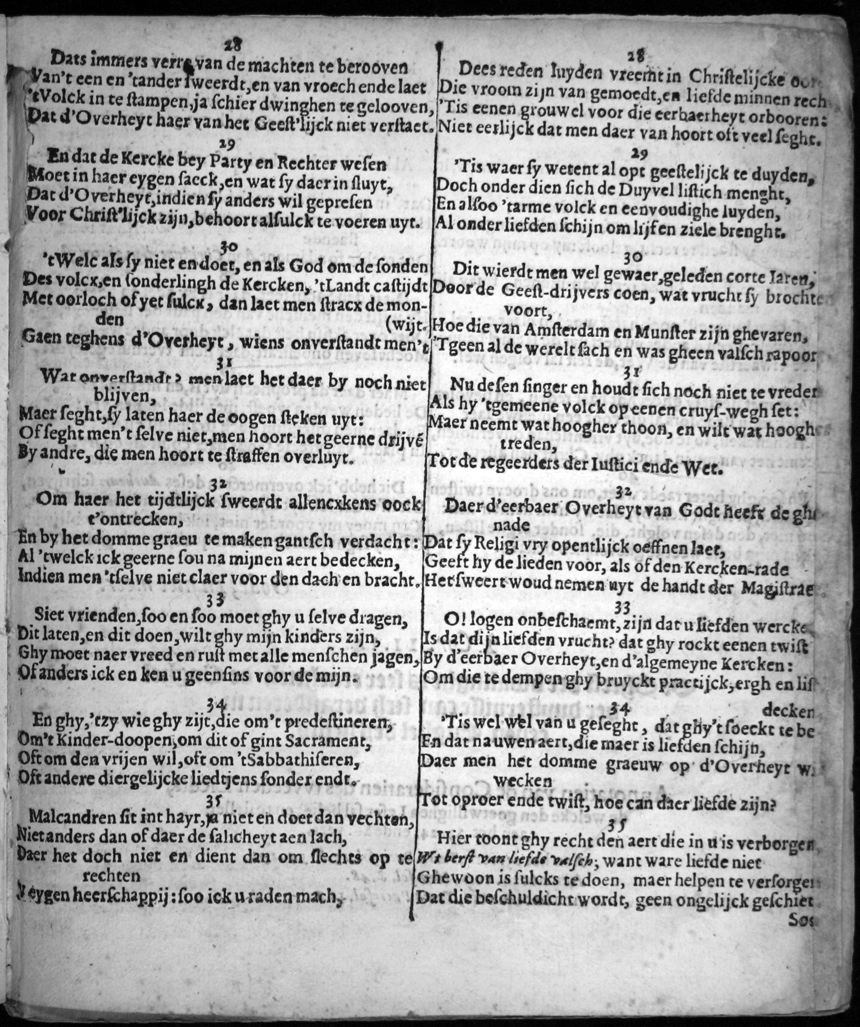 28
Dats immers verre van de machten te berooven
Van't een en 'tander ſweerdt, en van vroech ende laet
'tVolck in te ſtampen, ja ſchier dwinghen te gelooven,
Dat d'Overheyt haer van het Geeſt'lijck niet verſtaet.
29
En dat de Kercke bey Party en Rechter weſen
Moet in haer eygen ſaeck, en wat ſy daer in ſluyt,
Dat d'Overheyt, indien ſy anders wil gepreſen
Voor Chriſt'lijck zijn, behoort alſulck te voeren uyt.
30
'tWelc als ſy niet en doet, en als God om de ſonden
Des volcx, en ſonderlingh de Kercken, 'tLandt caſtijdt
Met oorloch of yet ſulcx, dan laet men ſtracx de mon-
den (wijt.
Gaen teghens d'Overheyt, wiens onverſtandt men't
31
Wat onverſtandt? men laet het daer by noch niet
blijven,
Maer ſeght, ſy laten haer de oogen ſteken uyt:
Of ſeght men't ſelve niet, men hoort het geerne drijvē
By andre, die men hoort te ſtraffen overluyt.
32
Om haer het tijdtlijck ſweerdt allencxkens oock
t'ontrecken,
En by het domme graeu te maken gantſch verdacht:
Al 'twelck ick geerne ſou na mijnen aert bedecken,
Indien men 'tſelve niet claer voor den dach en bracht.
33
Siet vrienden, ſoo en ſoo moet ghy u ſelve dragen,
Dit laten, en dit doen, wilt ghy mijn kinders zijn,
Ghy moet naer vreed en ruſt met alle menſchen jagen,
Of anders ick en ken u geenſins voor de mijn.
34
En ghy, 'tzy wie ghy zijt, die om't predeſtineren,
Om't Kinder-doopen, om dit of gint Sacrament,
Oft om den vrijen wil, oft om 'tSabbathiſeren,
Oft andere diergelijcke liedtjens ſonder endt.
35
Malcandren ſit int hayr, ja niet en doet dan vechten,
Niet anders dan of daer de ſalicheyt aen lach,
Daer het doch niet en dient dan om ſlechts op te
rechten
V eygen heerſchappij: ſoo ick u raden mach,
28
Dees reden luyden vreemt in Chriſtelijcke
Die vroom zijn van gemoedt, en liefde minnen rech
'Tis eenen grouwel voor die eerbaerheyt orbooren:
Niet eerlijck dat men daer van hoort oft veel ſeght.
29
'Tis waer ſy wetent al opt geeſtelijck te duyden,
Doch onder dien ſich de Duyvel liſtich menght,
En alſoo 'tarme volck en eenvoudighe luyden,
Al onder liefden ſchijn om lijf en ziele brenght.
30
Dit wierdt men wel gewaer, geleden corte Iaren,
Door de Geeſt-drijvers coen, wat vrucht ſy brochte
voort,
Hoe die van Amſterdam en Munſter zijn ghevaren,
'Tgeen al de werelt ſach en was gheen valſch rapoor
31
Nu deſen ſinger en houdt ſich noch niet te vreder
Als hy 'tgemeene volck op eenen cruyſ-wegh ſet:
Maer neemt wat hoogher thoon, en wilt wat hoogh
treden,
Tot de regeerders der Iuſtici ende Wet.
32
Daer d'eerbaer Overheyt van Godt heeft de ghe
nade
Dat ſy Religi vry opentlijck oeffnen laet,
Geeft hy de lieden voor, als of den Kercken-rade
Het ſweert woud nemen uyt de handt der Magiſtrae
33
O! logen onbeſchaemt, zijn dat u liefden wercke
Is dat dijn liefden vrucht? dat ghy rockt eenen twiſt
By d'eerbaer Overheyt, en d'algemeyne Kercken:
Om die te dempen ghy bruyckt practijck, ergh en liſ
34 decken
'Tis wel wel van u geſeght, dat ghy't ſoeckt te be
En dat na uwen aert, die maer is liefden ſchijn,
Daer men het domme graeuw op d'Overheyt w
wecken
Tot oproer ende twiſt, hoe can daer liefde zijn?
35
Hier toont ghy recht den aert die in u is verborgen
Wt berſt van liefde valſch; want ware liefde niet
Ghewoon is ſulcks te doen, maer helpen te verſorge
Dat die beſchuldicht wordt, geen ongelijck geſchiet
Soo